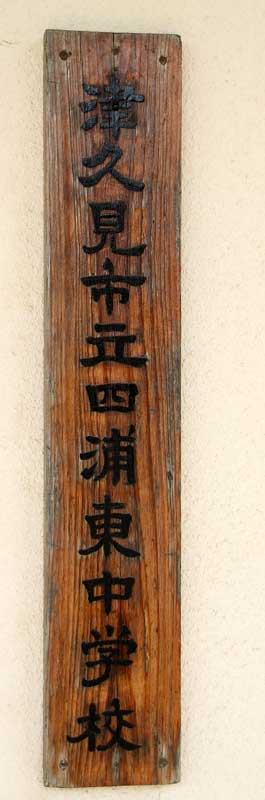 津久見市立四浦東中学校